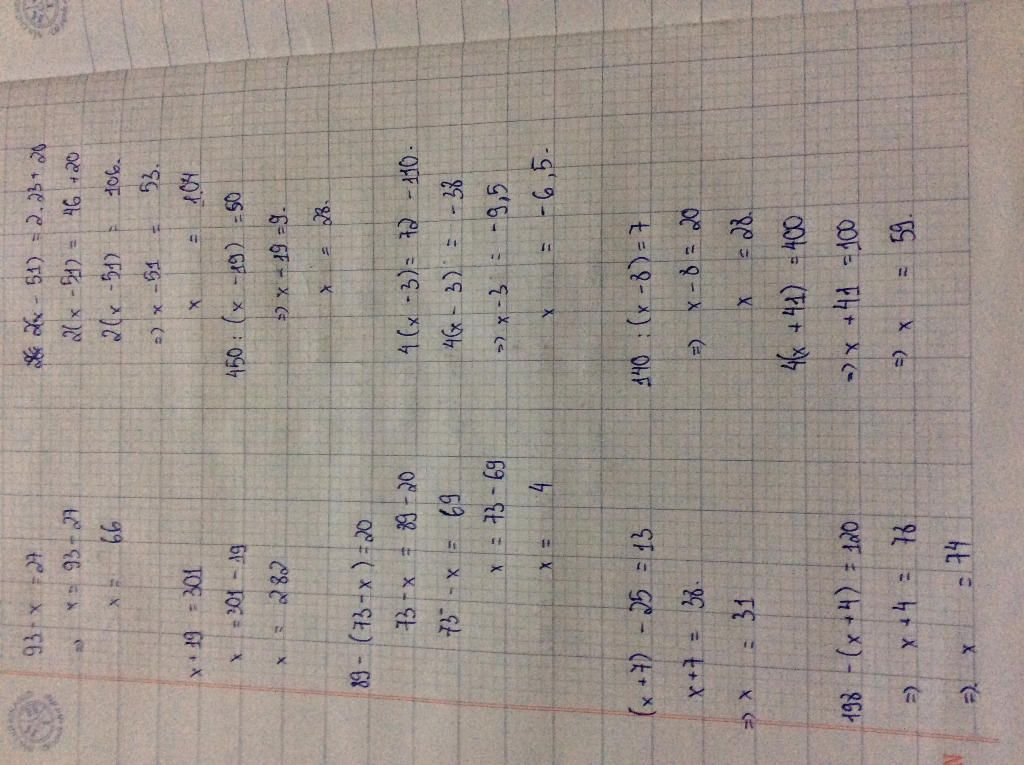 93 - x = 27
=> x = 93 - 27
x = 66
x + 19 = 301
x = 301 - 19
x = 282
89 - (73 - x) = 20
73 - x = 89 - 20
73 - x = 69
x = 73 - 69
x = 4
(x + 7) - 25 = 13
x + 7 = 38.
=> x = 31
198 - (x + 4) = 120
=> x + 4 = 78
=> x = 74
2(x - 51) = 2.23 + 20
2(x - 51) = 46 + 20
2(x - 51) = 106.
=> x - 51 = 53.
x = 104
450 : (x - 19) = 50
=> x - 19 = 9.
x = 28.
4(x - 3) = 72 - 110.
4(x - 3) = -38
=> x - 3 = -9,5
x = -6,5.
140 : (x - 8) = 7
=> x - 8 = 20
x = 28.
4(x + 41) = 400
=> x + 41 = 100
=> x = 59.